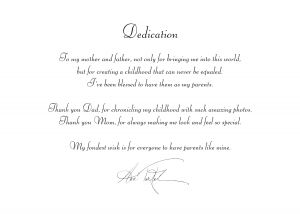 Dedication
To my mother and father, not only for bringing me into this world,
but for creating a childhood that can never be equaled.
I've been blessed to have them as my parents.
Thank you Dad, for chronicling my childhood with such amazing photos.
Thank you Mom, for always making me look and feel so special.
My fondest wish is for everyone to have parents like mine.